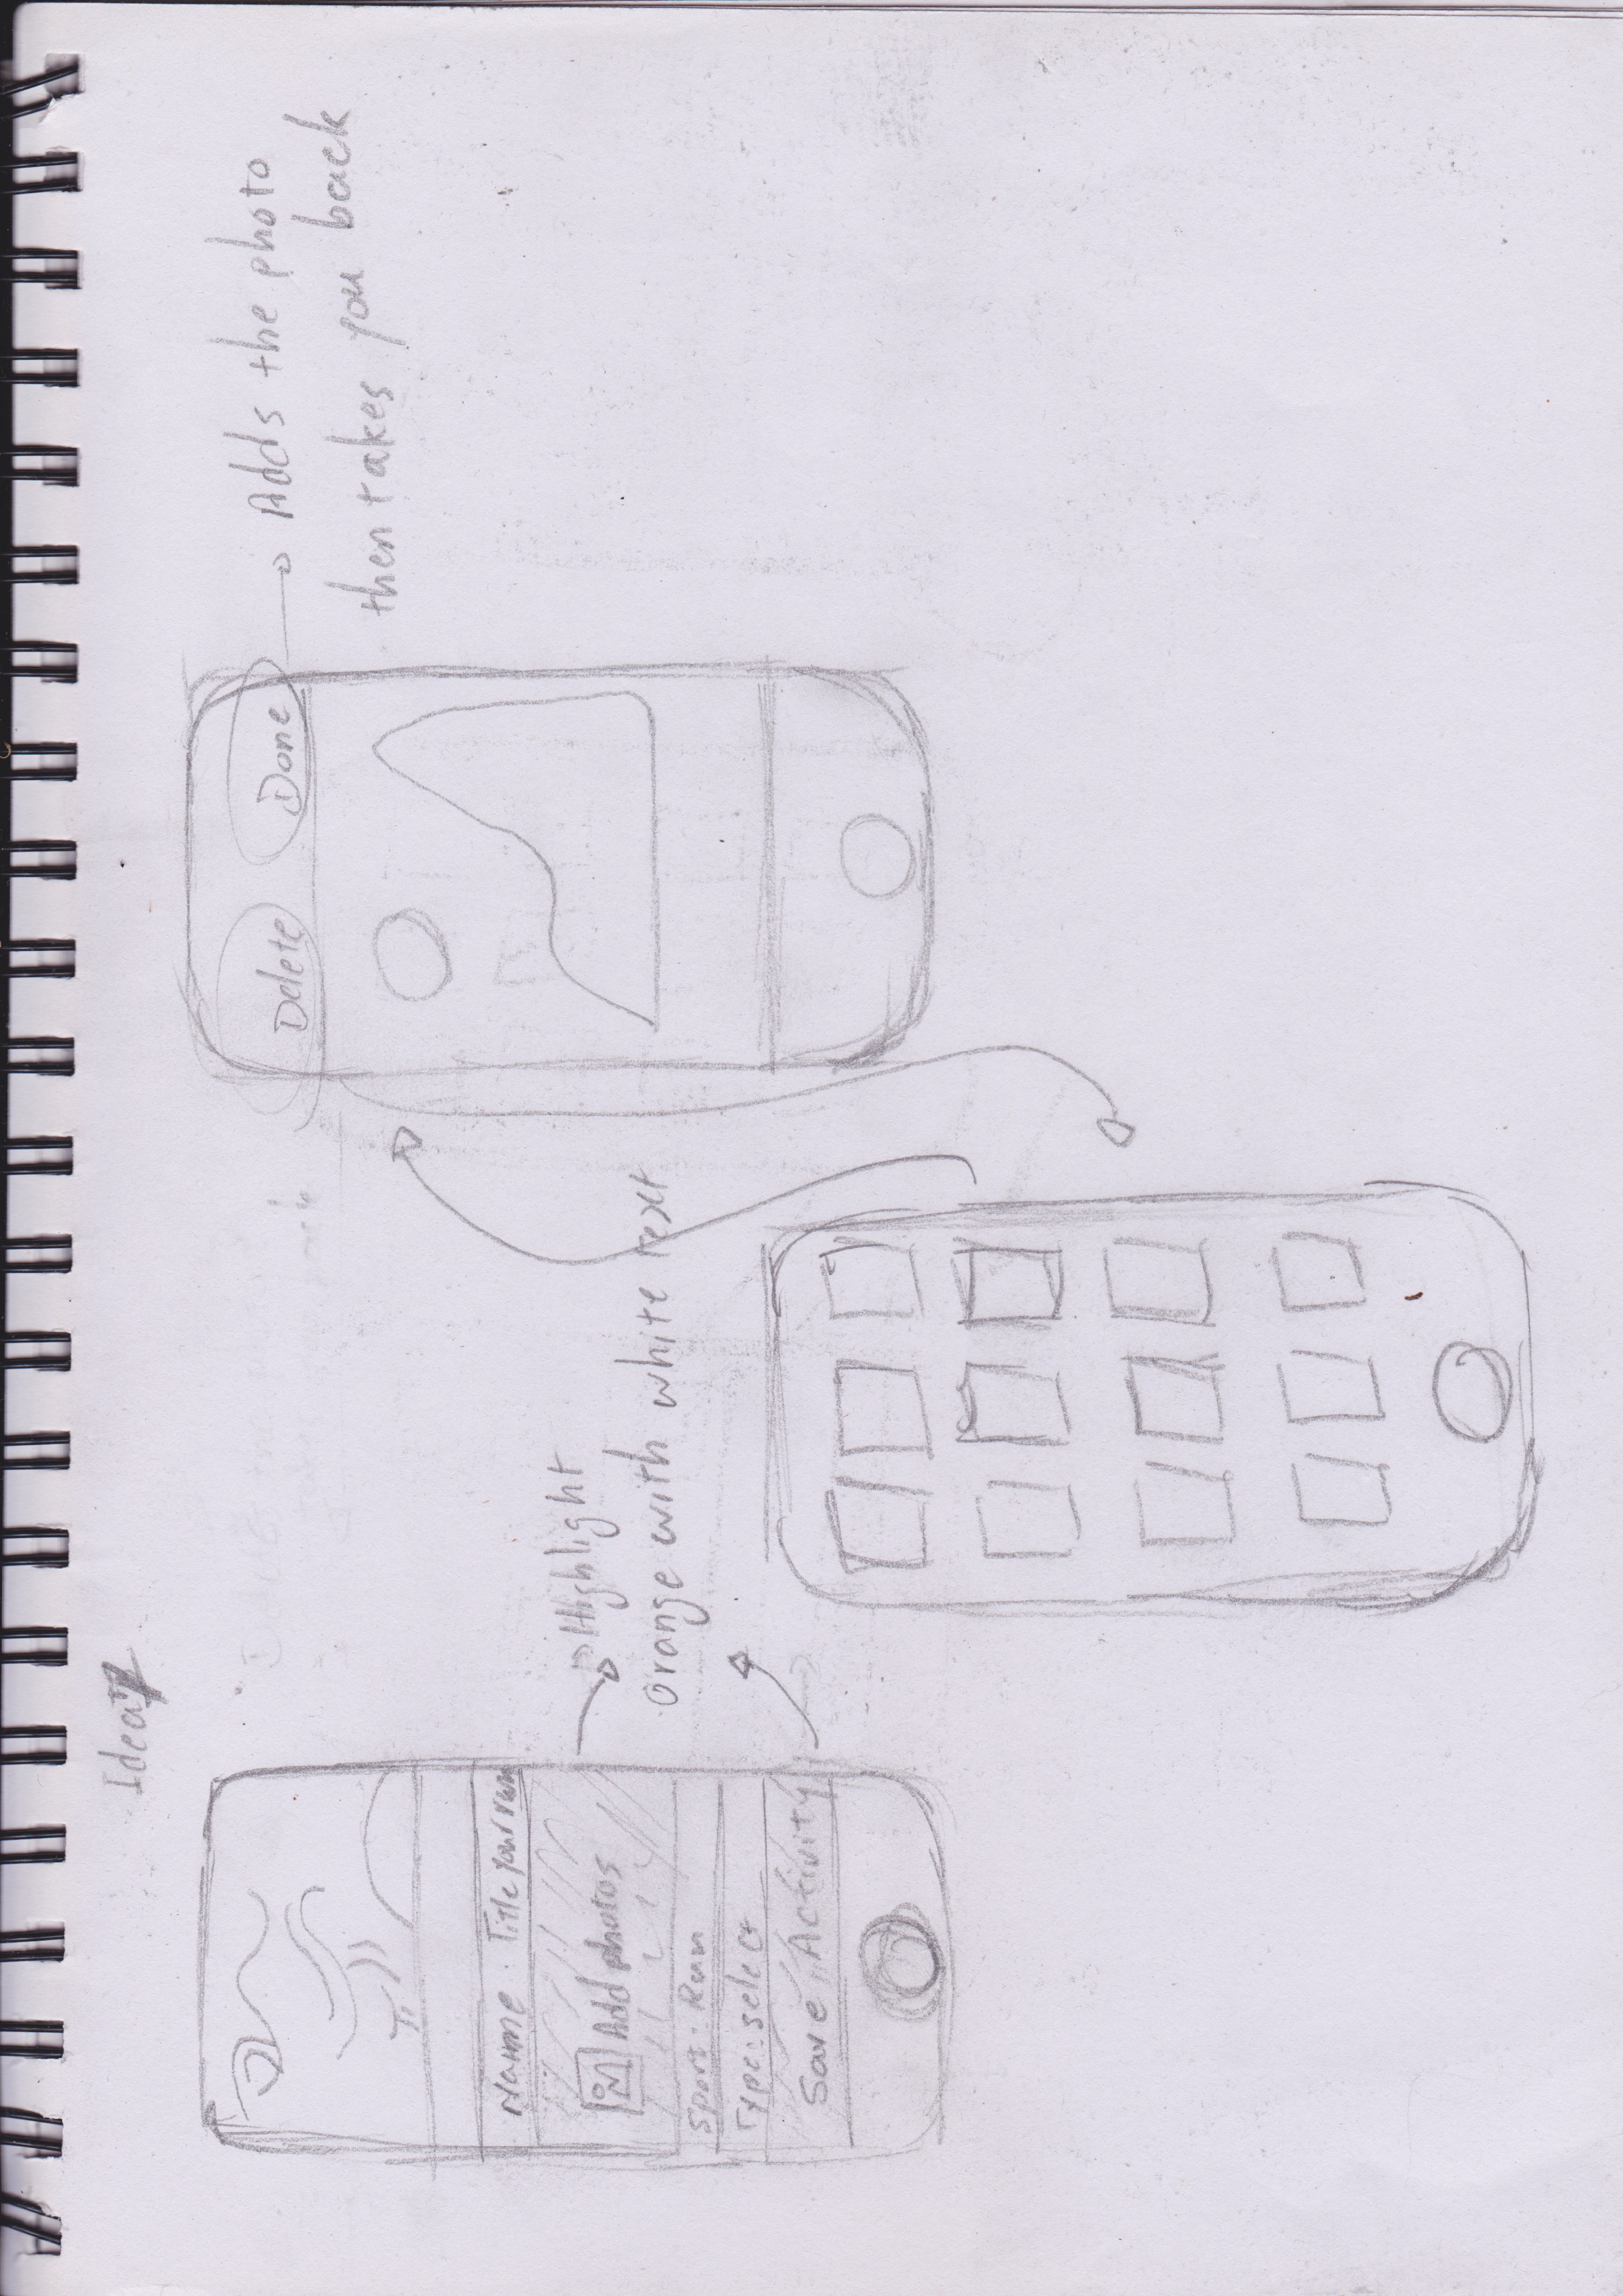 Name : Title your run
Add photos
Sport : Run
Type : select
Save Activity
Highlight
Orange with white text
Delete
Done
Adds the photo
then takes you back